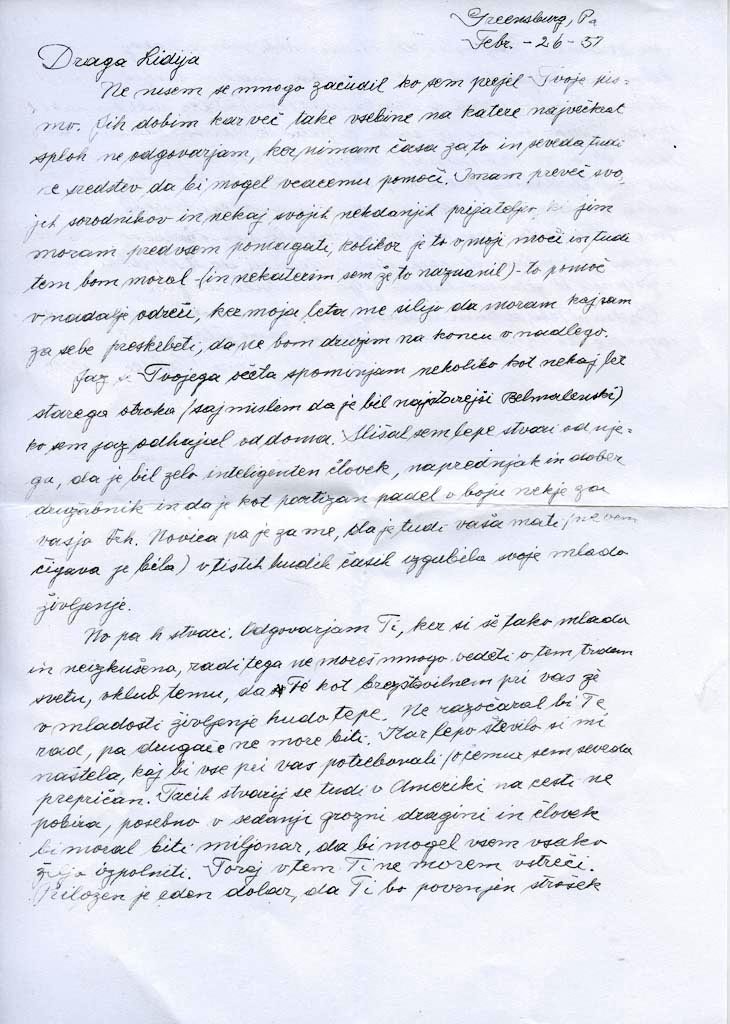 Greensburg, Pa
Febr. - 26 - 51
Draga Lidija
Ne nisem se mnogo začudil ko sem prejel Tvoje pis-
mo. Jih dobim kar več take vsebine na katere največkrat
sploh ne odgovarjam, ker nimam časa za to in seveda tudi
ne sredstev da bi mogel vsacemu pomoči. Imam preveč svo-
jih sorodnikov in nekaj svojih nekdanjih prijateljev, ki jim
moram predvsem pomagati, kolikor je to v moji moči in tudi
tem bom moral - (in nekaterim sem že to naznanil) - to pomoč
v nadalje odreči, ker moja leta me silijo da moram kaj sam
za sebe preskrbeti, da ne bom drugim na koncu v nadlego.
Jaz se Tvojega očeta spominjam nekoliko kot nekaj let
starega otroka (saj mislem da je bil najstarejši Belmalenski)
ko sem jaz odhajal od doma. Slišal sem lepe stvari od nje-
ga, da je bil zelo inteligenten človek, naprednjak in dober
družabnik in da je kot partizan padel v boju nekje za
vasjo. Novica pa je za me, da je tudi vaša mati (ne vem
čigava je bila) v tistih hudih časih izgubila svoje mlado
življenje.
No pa k stvari. Odgovarjam Ti, ker si še tako mlada
in neizkušena, radi tega ne moreš mnogo vedeti o tem trdem
svetu, vklub temu, da Te kot brezštevilnem pri vas že
v mladosti življenje hudo tepe. Ne razočaral bi Te
rad, pa drugače ne more biti. Kar lepo število si mi
naštela, kaj bi vse pri vas potrebovali (o čemur sem seveda
prepričan. Tacih stvarij se tudi v Ameriki na cesti ne
pobira, posebno v sedanji grozni draginji in človek
bi moral biti miljonar, da bi mogel vsem vsako
željo izpolniti. Torej v tem Ti ne morem vstreči.
Priložen je eden dolar, da Ti bo povrnjen strošek